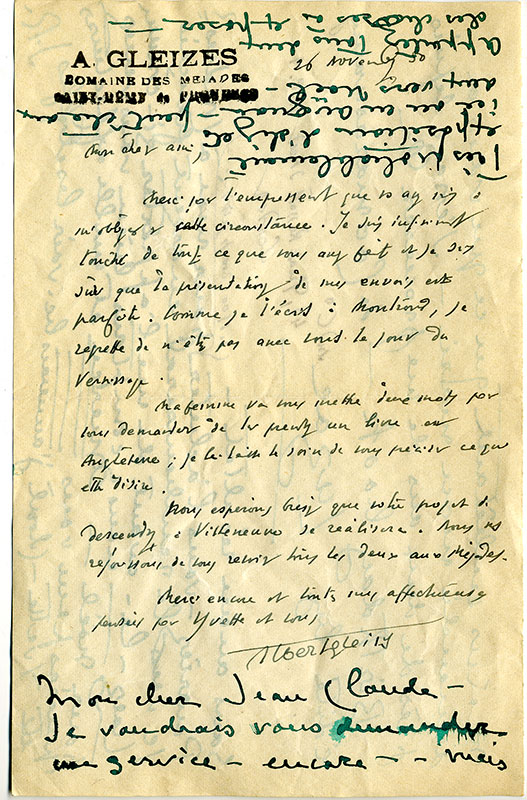 A. GLEIZES
DOMAINE DES MÉJADES
SAINT-RÉMY de PROVENCE
26 novembre
Mon cher ami,
Merci pour l'empressement que vous avez mis à
m'obliger en cette circonstance. Je suis infiniment
touché de tout ce que vous avez fait et je suis
sûr que la présentation de mes envois est
parfaite. Comme je l'écris à Montrond, je
regrette de n'être pas avec vous le jour du
vernissage.
Ma femme va vous mettre deux mots pour
vous demander de lui prendre un livre en
Angleterre ; je lui laisse le soin de vous préciser ce que
elle désire.
Nous espérons bien que votre projet de
descendre à Villeneuve se réalisera. Nous nous
réjouissons de vous revoir tous les deux aux Méjades.
Merci encore et toutes mes affectueuses
pensées pour Yvette et vous,
Albert Gleizes
Mon cher Jean Claude —
Je voudrais vous demander
un service — encore — — mais
Très probablement
exposition d'objets
ici ou en Avignon — peut-être
vers Noël —
apportez tous deux
des choses à exposer —